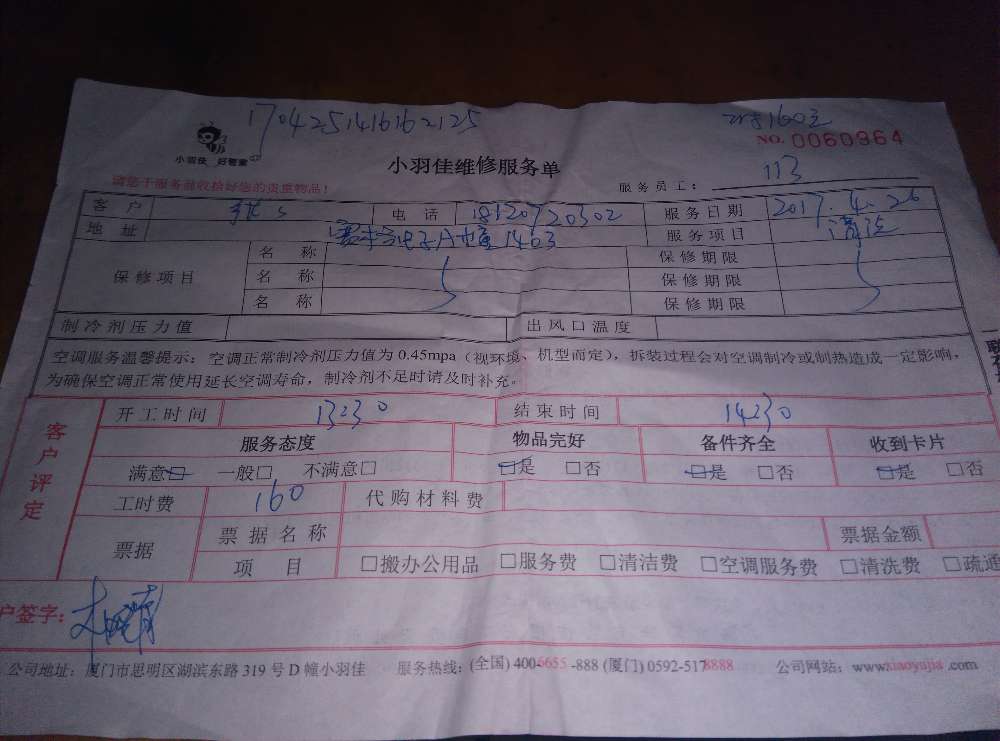 170425141616 2125
160元
小羽佳 好管家
NO. 0060964
小羽佳维修服务单
请您于服务前收拾好您的贵重物品！
服务员工： 113
客户 电话 18120720302 服务日期 2017.4.26
地址 1403 服务项目 清洗
保修项目
名称 保修期限
名称 保修期限
名称 保修期限
制冷剂压力值 出风口温度
空调服务温馨提示：空调正常制冷剂压力值为 0.45mpa（视环境、机型而定），拆装过程会对空调制冷或制热造成一定影响，
为确保空调正常使用延长空调寿命，制冷剂不足时请及时补充。
客户评定
开工时间 13:30 结束时间 14:30
服务态度 物品完好 备件齐全 收到卡片
满意□ 一般□ 不满意□ □是 □否 □是 □否 □是 □否
工时费 160 代购材料费
票据 票据名称 票据金额
项目 □搬办公用品 □服务费 □清洁费 □空调服务费 □清洗费 □疏通
户签字：
公司地址：厦门市思明区湖滨东路 319 号 D 幢小羽佳 服务热线：(全国) 400-6655-888 (厦门) 0592-5178888 公司网站：www.xiaoyujia.com